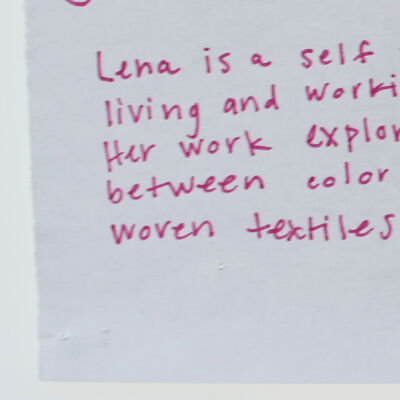 Lena is a self
living and worki
Her work explor
between color
woven textiles